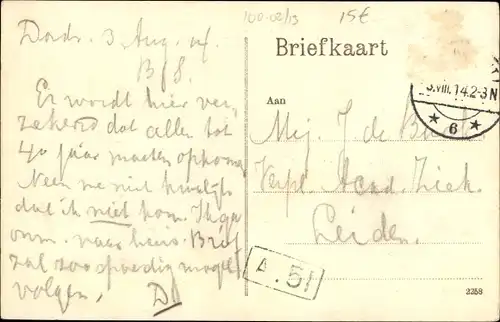 100-02/13
15€
Dordr. 3 Aug. 14.
B S.
Er wordt hier ver-
zekerd dat allen tot
40 jaar moeten opkomen
Neem me niet kwalijk
dat ik niet kom. Ik ga
onm. naar huis. Brief
zal zoo spoedig mogelijk
volgen.
D
Briefkaart
3.VIII.14.2-3N
6
Aan
Mej. J. de
Verpl. Acad. Ziek.
Leiden.
A. 51
2258